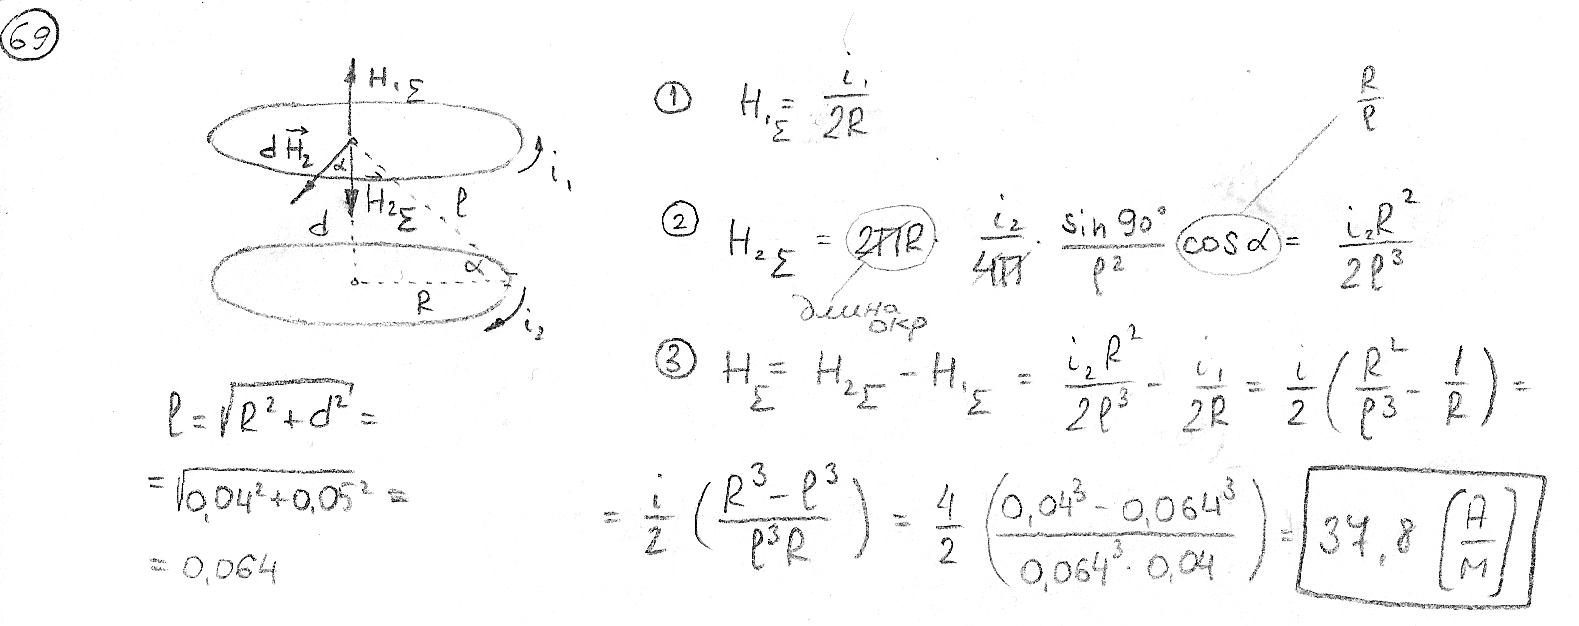 69
H₁Σ
dH⃗₂
α
i₁
H⃗₂Σ
ℓ
d
α
R
i₂
ℓ = √(R² + d²) =
= √(0,04² + 0,05²) =
= 0,064
① H₁Σ = i₁/2R
R/ℓ
② H₂Σ = 2πR · i₂/4π · sin 90°/ℓ² cos α = i₂R²/2ℓ³
длина
окр
③ HΣ = H₂Σ - H₁Σ = i₂R²/2ℓ³ - i₁/2R = i/2 (R²/ℓ³ - 1/R) =
= i/2 ((R³ - ℓ³)/ℓ³R) = 4/2 ((0,04³ - 0,064³)/(0,064³ · 0,04)) = 37,8 [А/м]